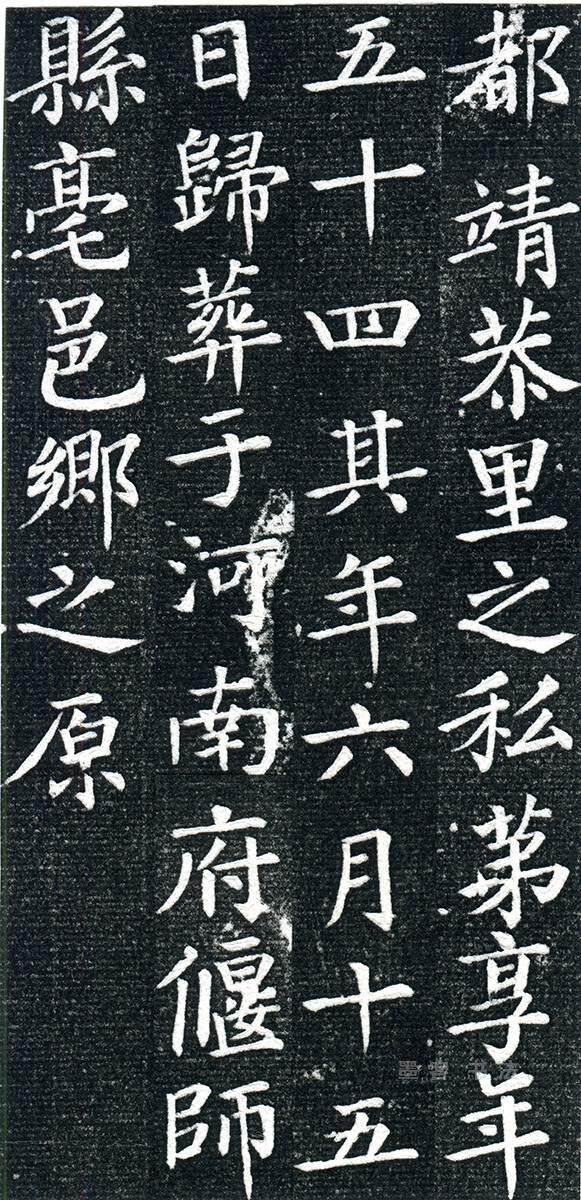 都靖恭里之私苐享年
五十四其年六月十五
日歸葬于河南府偃師
縣亳邑鄉之原